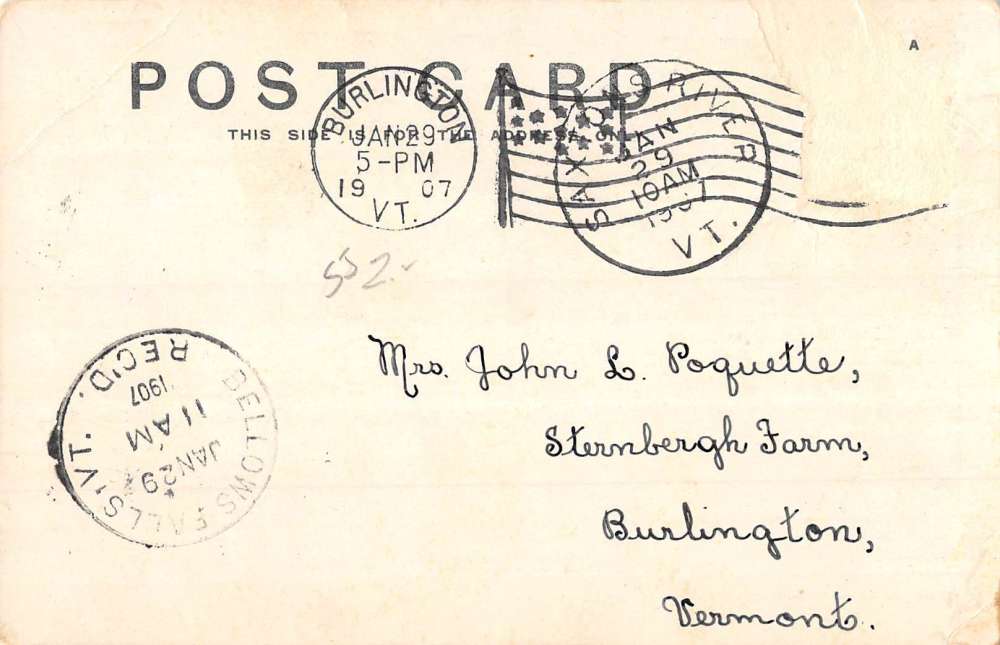 A
POST CARD
THIS SIDE IS FOR THE ADDRESS ONLY
BURLINGTON
JAN 29
5-PM
19 07
VT.
SAXTONS RIVER
JAN
29
10AM
1907
VT.
552.
BELLOWS FALLS, VT. REC'D
JAN 29
11 AM
1907
Mrs. John L. Poquette,
Sternbergh Farm,
Burlington,
Vermont.